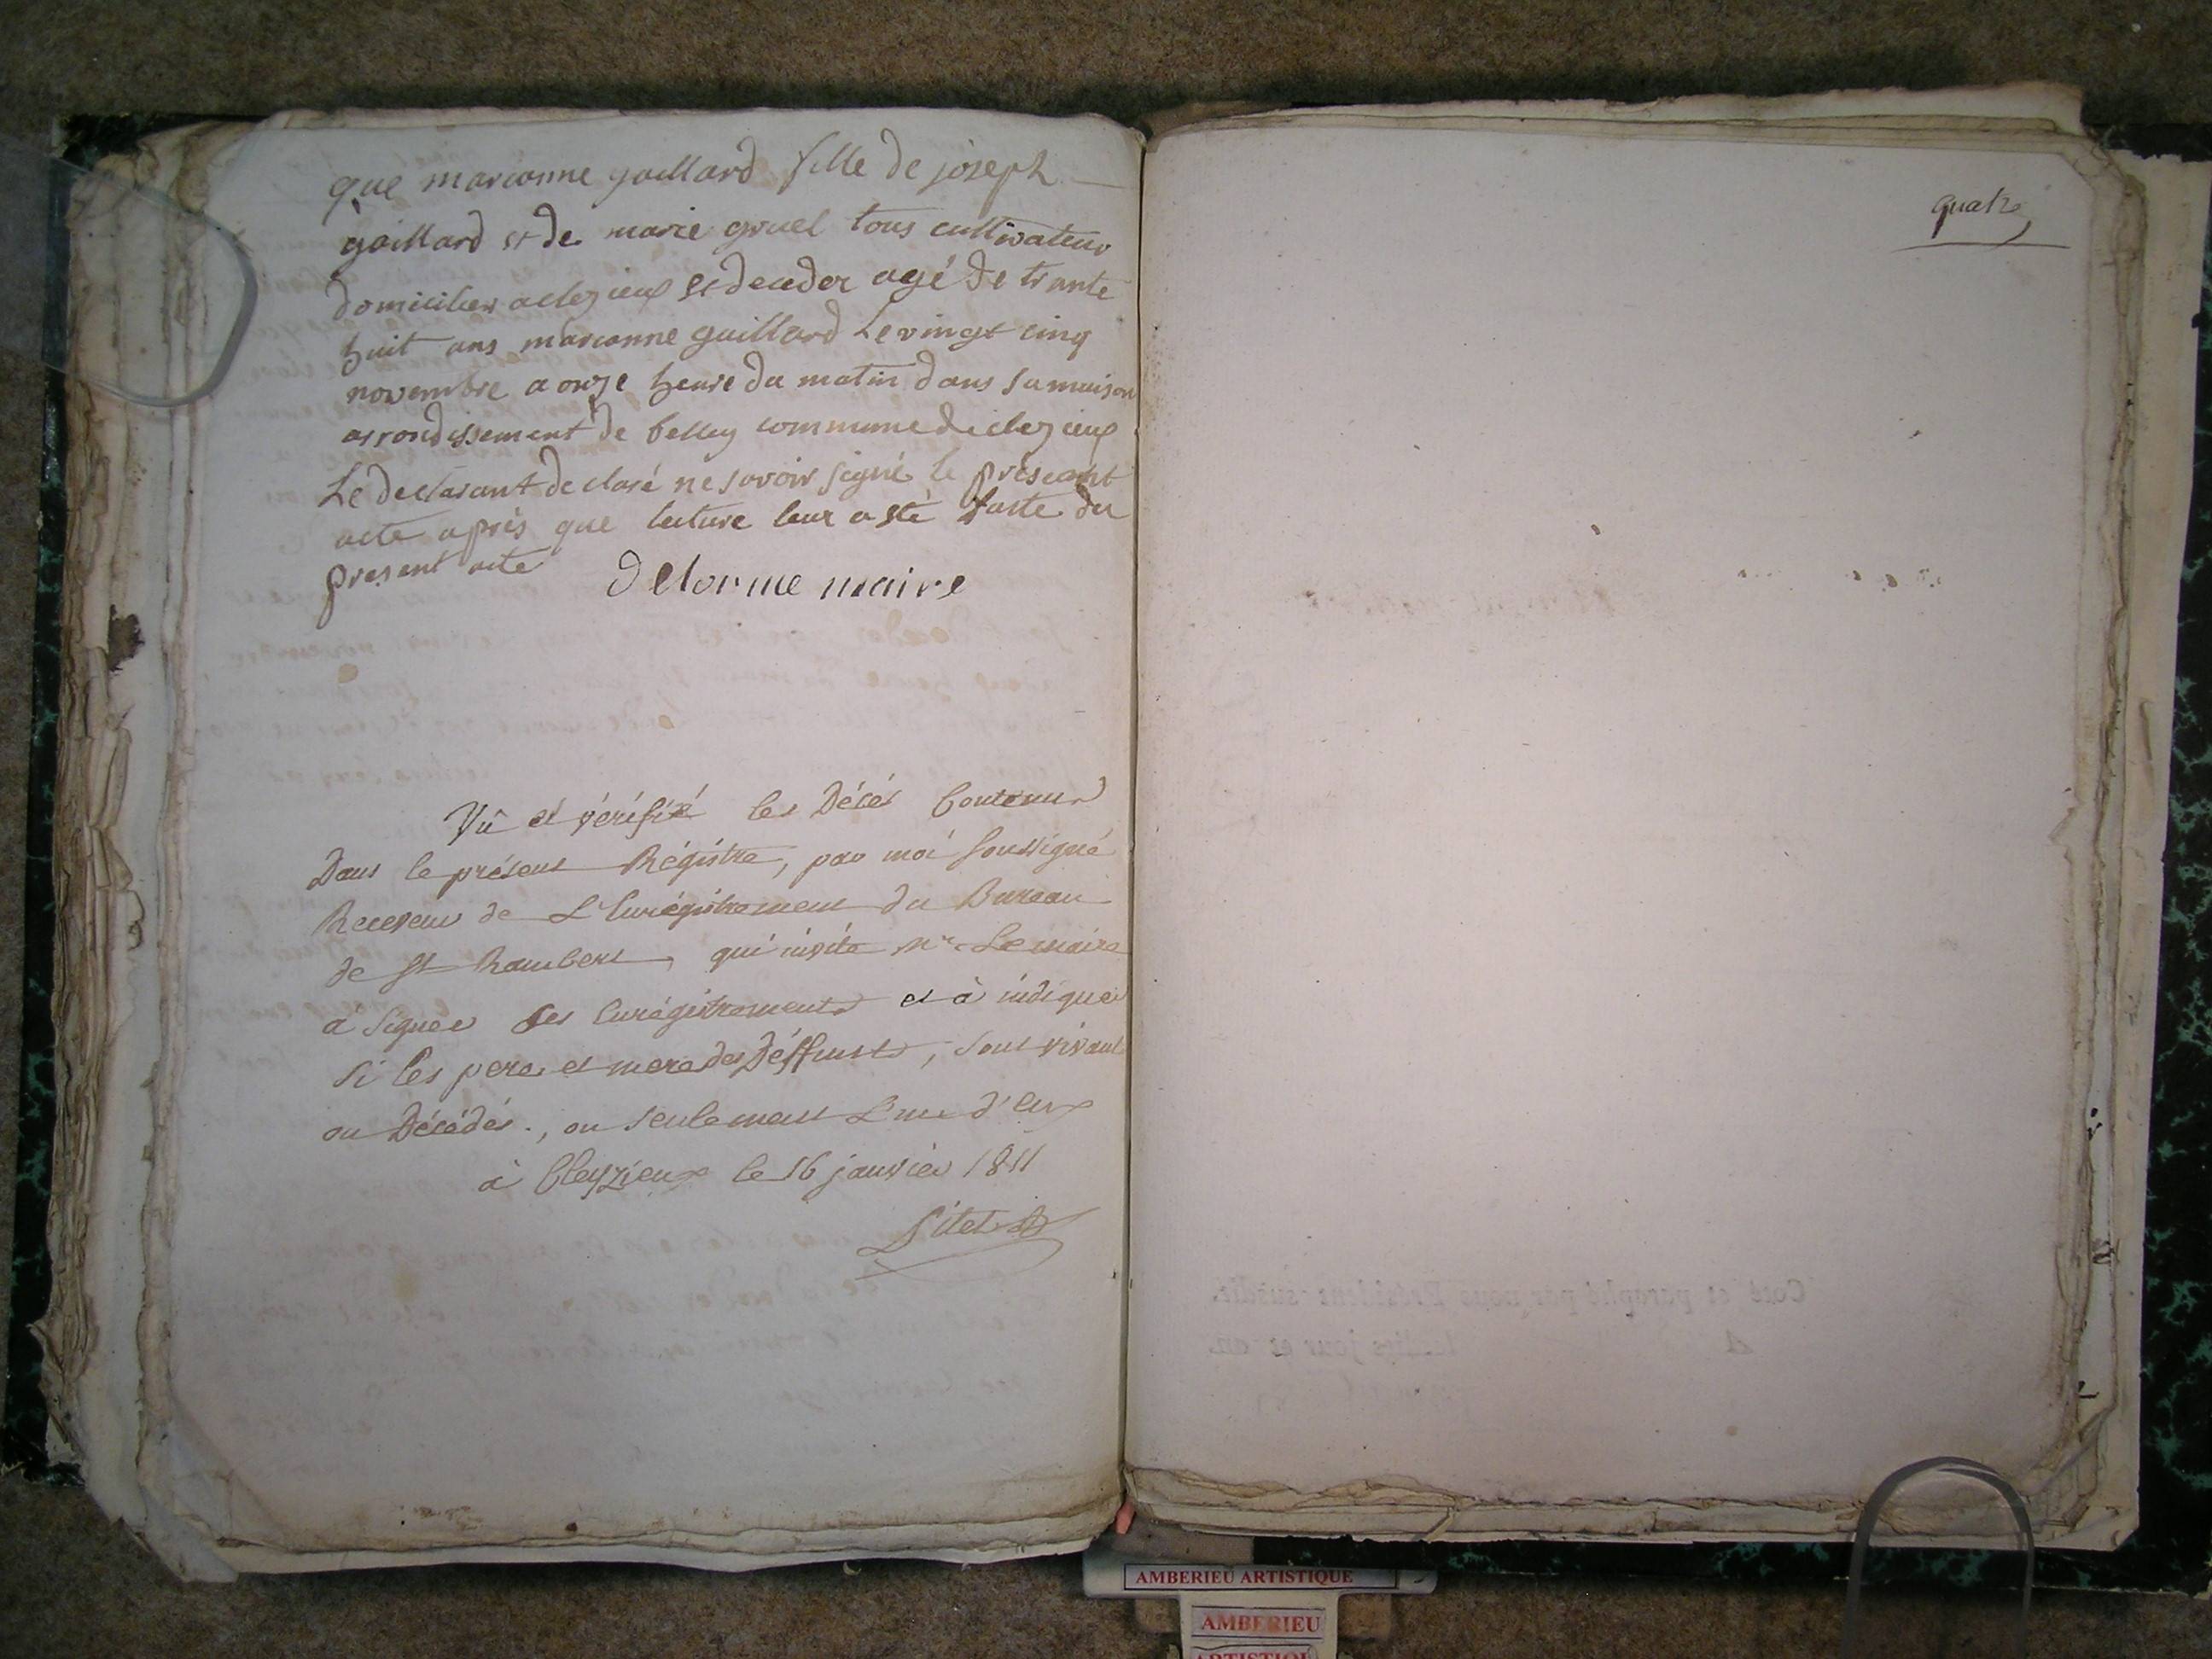 que marianne gaillard fille de joseph
gaillard et de marie gruel tous cultivateur
domicilier a cleyzieux et deceder agé de trante
huit ans marianne gaillard Le vingt cinq
novembre a onze heure du matin dans sa maison
arrondissement de belley commune de cleyzieux
Le declarant declaré ne savoir signé le preseant
acte après que lecture leur a eté faite du
present acte
Delorme maire
Vû et vérifié les Décés Contenus
Dans le présent Régistre, par moi soussigné
Receveur de L'Enrégistrement du Bureau
de St Rambert, qui invite Mr Le maire
a signer les Enrégistrements et à indiquer
si les pere et mere des Déffunts, sont vivant
ou Décédés, ou seulement L'un d'eux
à Cleyzieux le 16 janvier 1811
quatre
Coté et paraphé par nous Président susdit.
A lesdits jour et an.
AMBERIEU ARTISTIQUE
AMBERIEU
ARTISTIQUE